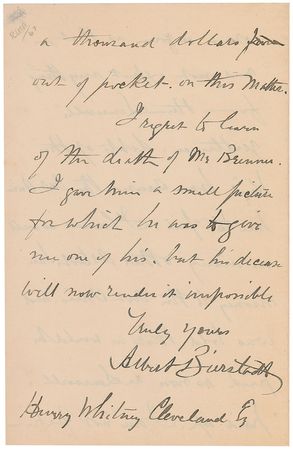 a thousand dollars
out of pocket. on this matter.
I regret to learn
of the death of Mr Brenner.
I gave him a small picture
for which he was to give
me one of his. but his decease
will now render it impossible
Truly yours
Albert Bierstadt
Henry Whitney Cleveland Eq